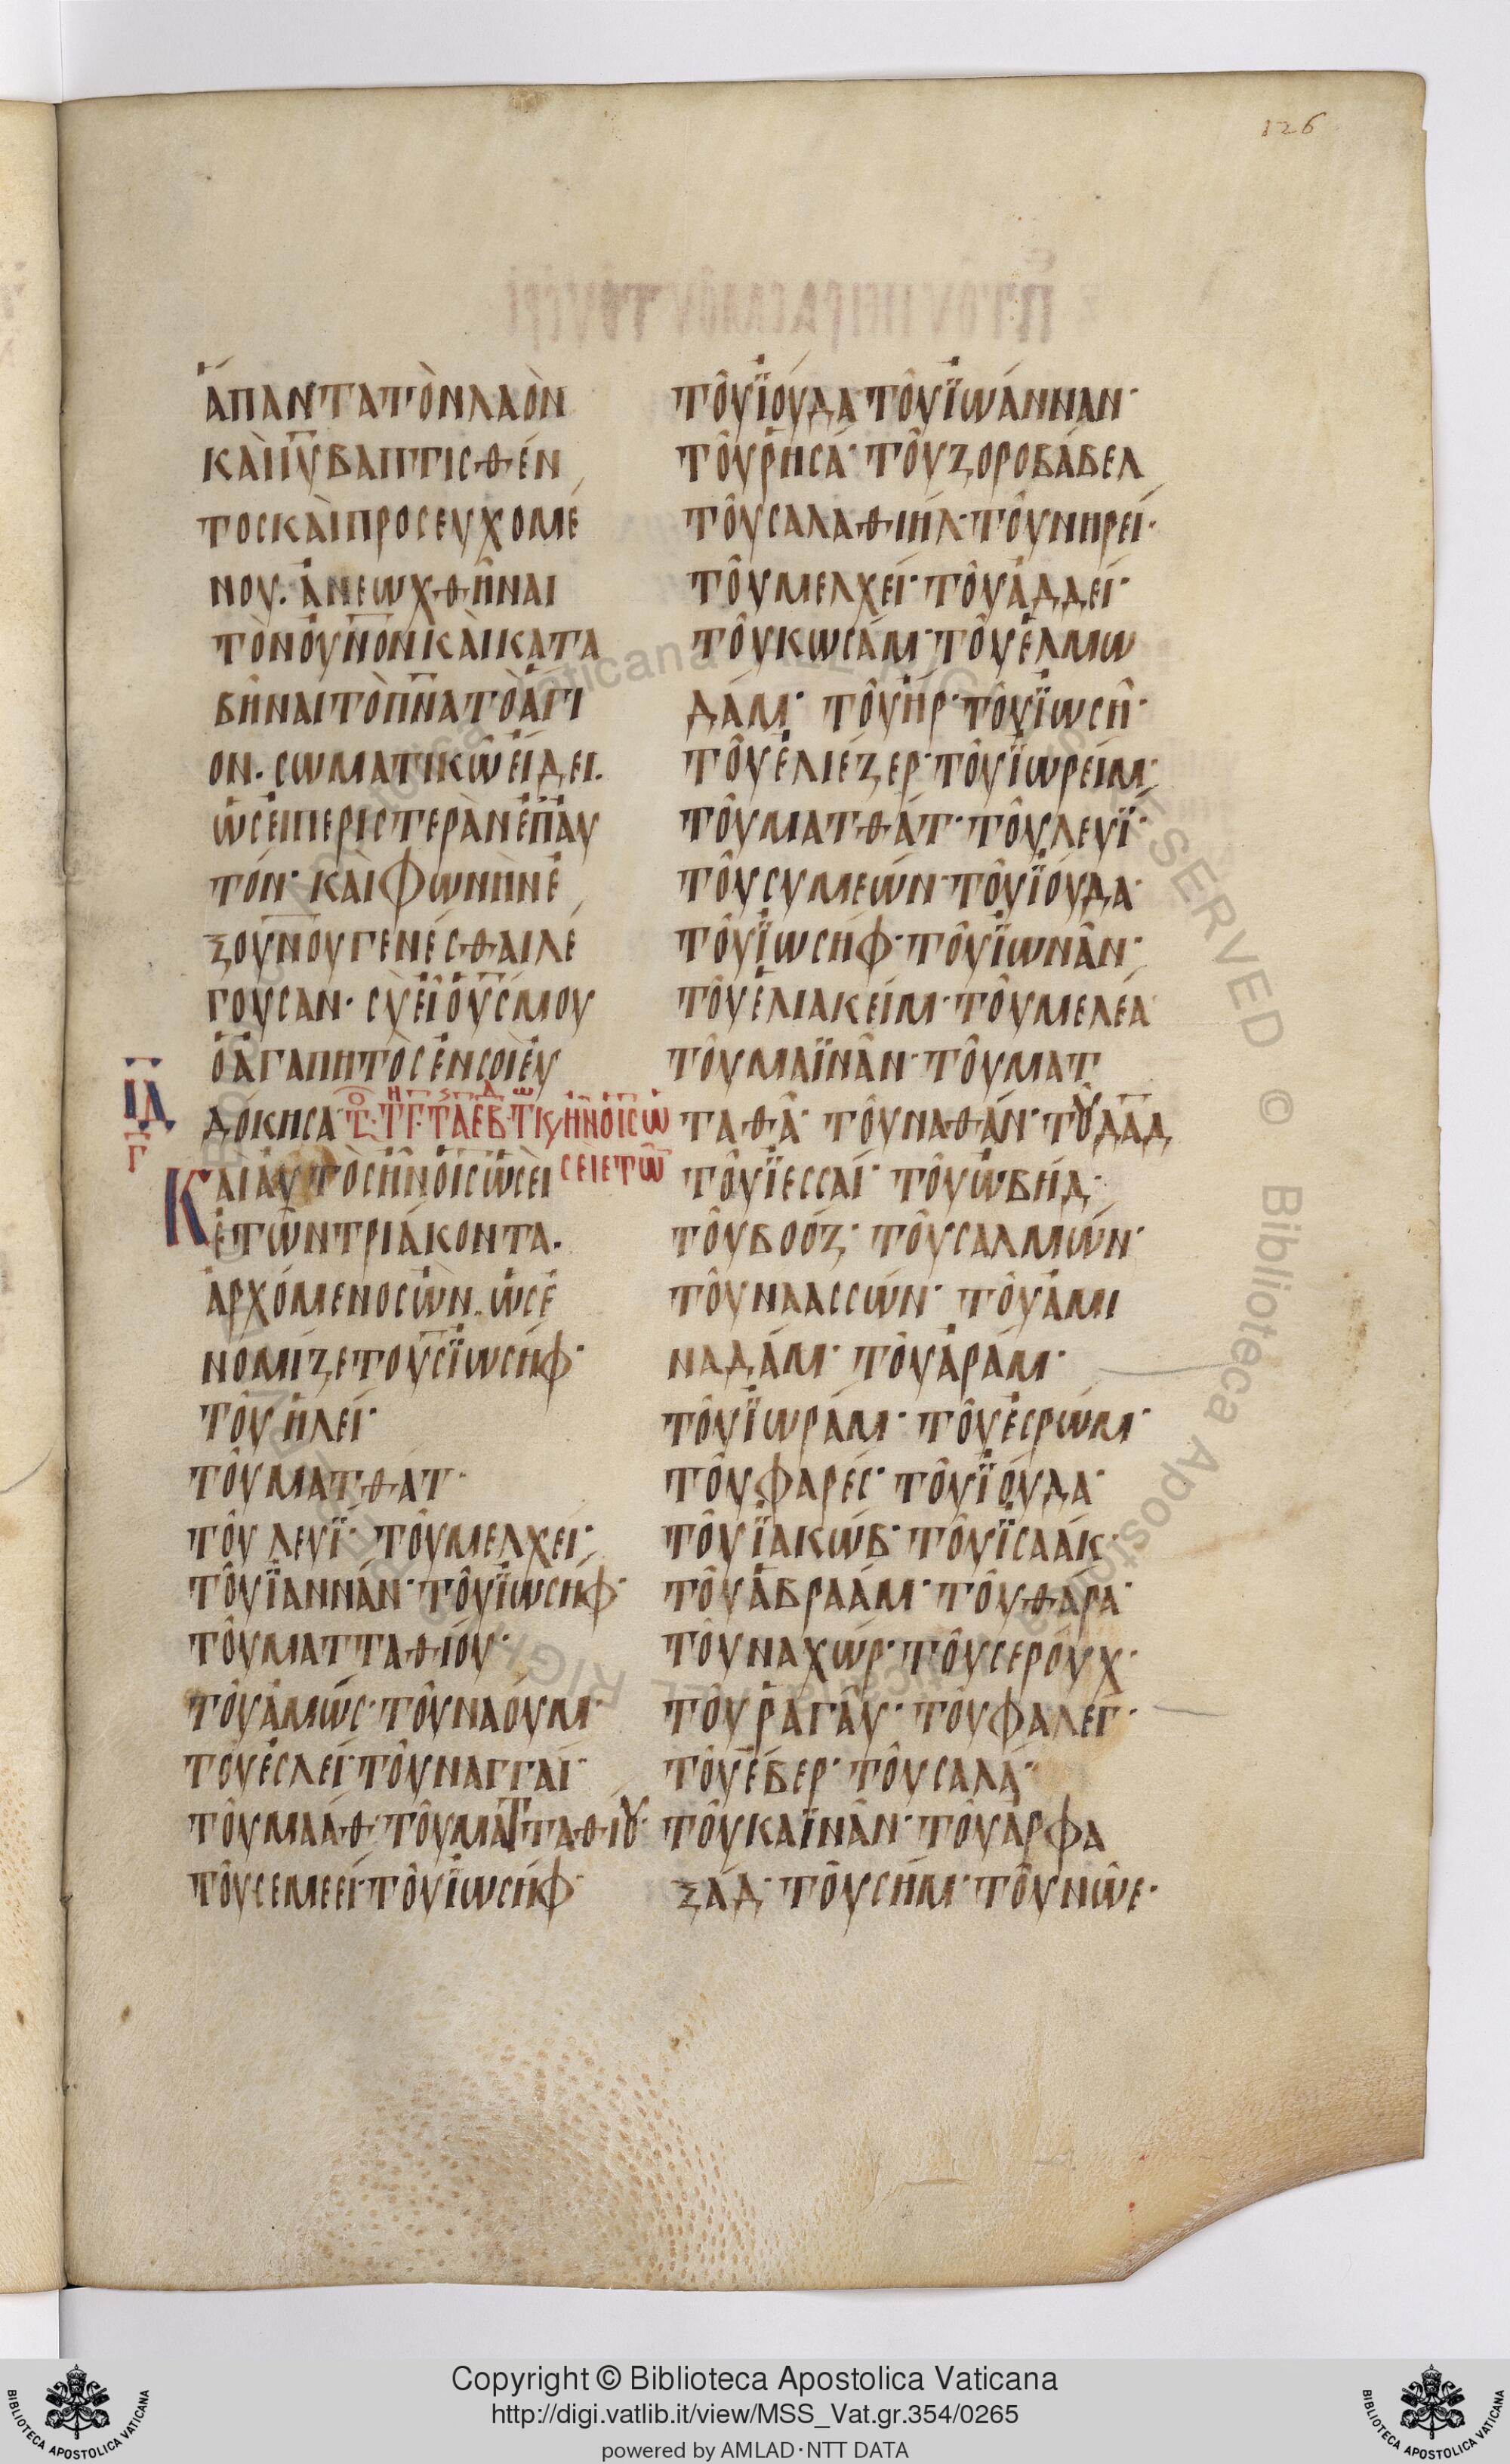 126
ἅπαντατὸνλαὸν
καὶι̅υ̅βαπτισθέν
τοσκαὶπροσευχομέ
νου. ἀνεωχθῆναι
τὸνοὐν̅ο̅ν̅καὶκατα
βῆναιτὸπ̅ν̅ατὸἅγι
ον. σωματικῶεἴδει.
ὡσεὶπεριστερὰνἐπ̅ἀυ
τόν· καὶφωνὴνἐ
ξουν̅ουγενέσθαιλέ
γουσαν· σὺεἶὁυ̅σ̅μου
ὁἀγαπητὸσἐνσοιἐυ
δόκησα
ι̅δ̅
γ̅
σειετω̅
Καιἀυτὸσἦνὁι̅σ̅ὡσεὶ
ἐτῶντριάκοντα.
ἀρχόμενοσὢν.. ὡσἐ
νομίζετου̅σ̅ϊωσήφ·
τοῦ ἡλεί·
τοῦματθατ·
τοῦ λευΐ· τοῦμελχεί·
τοῦϊαννάν· τοῦϊωσήφ·
τοῦματταθίου·
τοῦἀμώς· τοῦναούμ·
τοῦἐσλεί· τοῦναγγαί·
τοῦμαάθ· τοῦματταθίȣ·
τοῦσεμεεί· τοῦϊωσήφ·
τοῦϊούδα· τοῦϊωάνναν·
τοῦῥησά· τοῦζοροβάβελ
τοῦσαλαθιήλ· τοῦνηρεί·
τοῦμελχεί· τοῦἀδδεί·
τοῦκωσάμ· τοῦἐλμω
δάμ· τοῦἤρ· τοῦϊωσῆ·
τοῦἐλιέζερ· τοῦϊωρείμ·
τοῦματθάτ· τοῦλευΐ·
τοῦσυμεών· τοῦϊούδα·
τοῦϊωσήφ· τοῦϊωνᾶν·
τοῦἐλιακείμ· τοῦμελεά
τοῦμαϊνᾶν· τοῦματ
ταθᾶ· τοῦναθάν· τȣ͂δα̅δ̅
τοῦϊεσσαί· τοῦὠβήδ·
τοῦβοόζ· τοῦσαλμών·
τοῦναασσών· τοῦἀμι
ναδάμ· τοῦἀράμ·
τοῦϊωράμ· τοῦἐσρώμ·
τοῦφαρές· τοῦϊούδα·
τοῦϊακώβ· τοῦϊσαάκ·
τοῦἀβραάμ· τοῦθάρα·
τοῦναχώρ· τοῦσερούχ·
τοῦῥαγᾶυ· τοῦφαλεγ·
τοῦἐβερ· τοῦσαλά·
τοῦκαϊνᾶν· τοῦἀρφα
ξάδ· τοῦσήμ· τοῦνῶε·
Copyright © Biblioteca Apostolica Vaticana
http://digi.vatlib.it/view/MSS_Vat.gr.354/0265
powered by AMLAD·NTT DATA
BIBLIOTECA APOSTOLICA VATICANA
BIBLIOTECA APOSTOLICA VATICANA